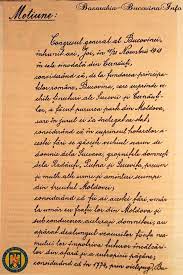 Basarabia-Bucovina.Info
Moțiune:
Congresul general al Bucovinei,
întrunit azi, Joi, în 15/28 Noemvrie 1918
în sala sinodală din Cernăuți,
considerând că, dela fundarea principa-
telor române, Bucovina, care cuprinde ve-
chile ținuturi ale Sucevii și Cernăuți-
lor, a făcut pururea parte din Moldova,
care în jurul ei s'a închegat ca stat;
considerând că în cuprinsul hotarelor a-
cestei țări se găsește vechiul scaun de
domnie dela Suceava, gropnițele domnești
dela Rădăuți, Putna și Sucevița, precum
și multe alte urme și amintiri scumpe
din trecutul Moldovei;
considerând că fii ai acestei țări, umăr
la umăr cu frații lor din Moldova și
sub conducerea acelorași domnitori au
apărat dealungul veacurilor ființa nea-
mului lor împotriva tuturor încălcări-
lor din afară și a cotropirei păgâne;
considerând că în 1774, prin vicleșug, Bu-